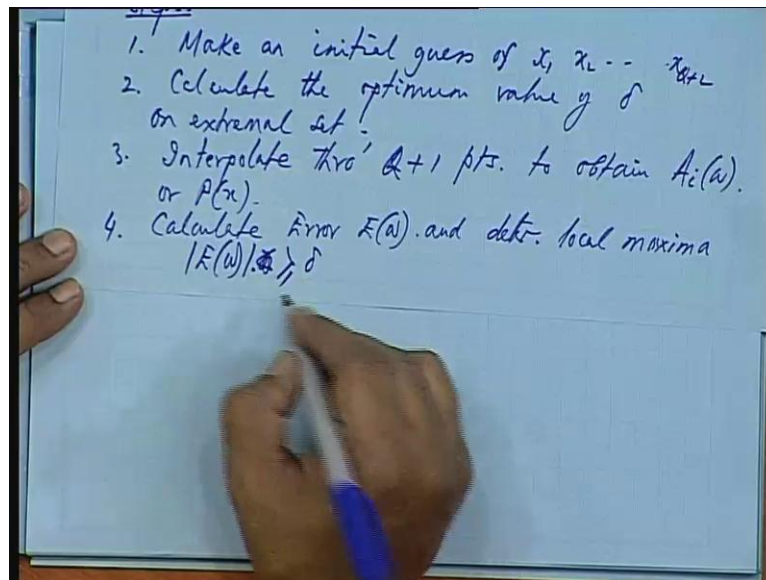 Steps
1. Make an initial guess of x₁ x₂ -- x_Q+2
2. Calculate the optimum value of δ
on extremal set.
3. Interpolate thro' Q+1 pts. to obtain A_i(ω).
or P(x).
4. Calculate Error E(ω). and detr. local maxima
|E(ω)| ≥ δ